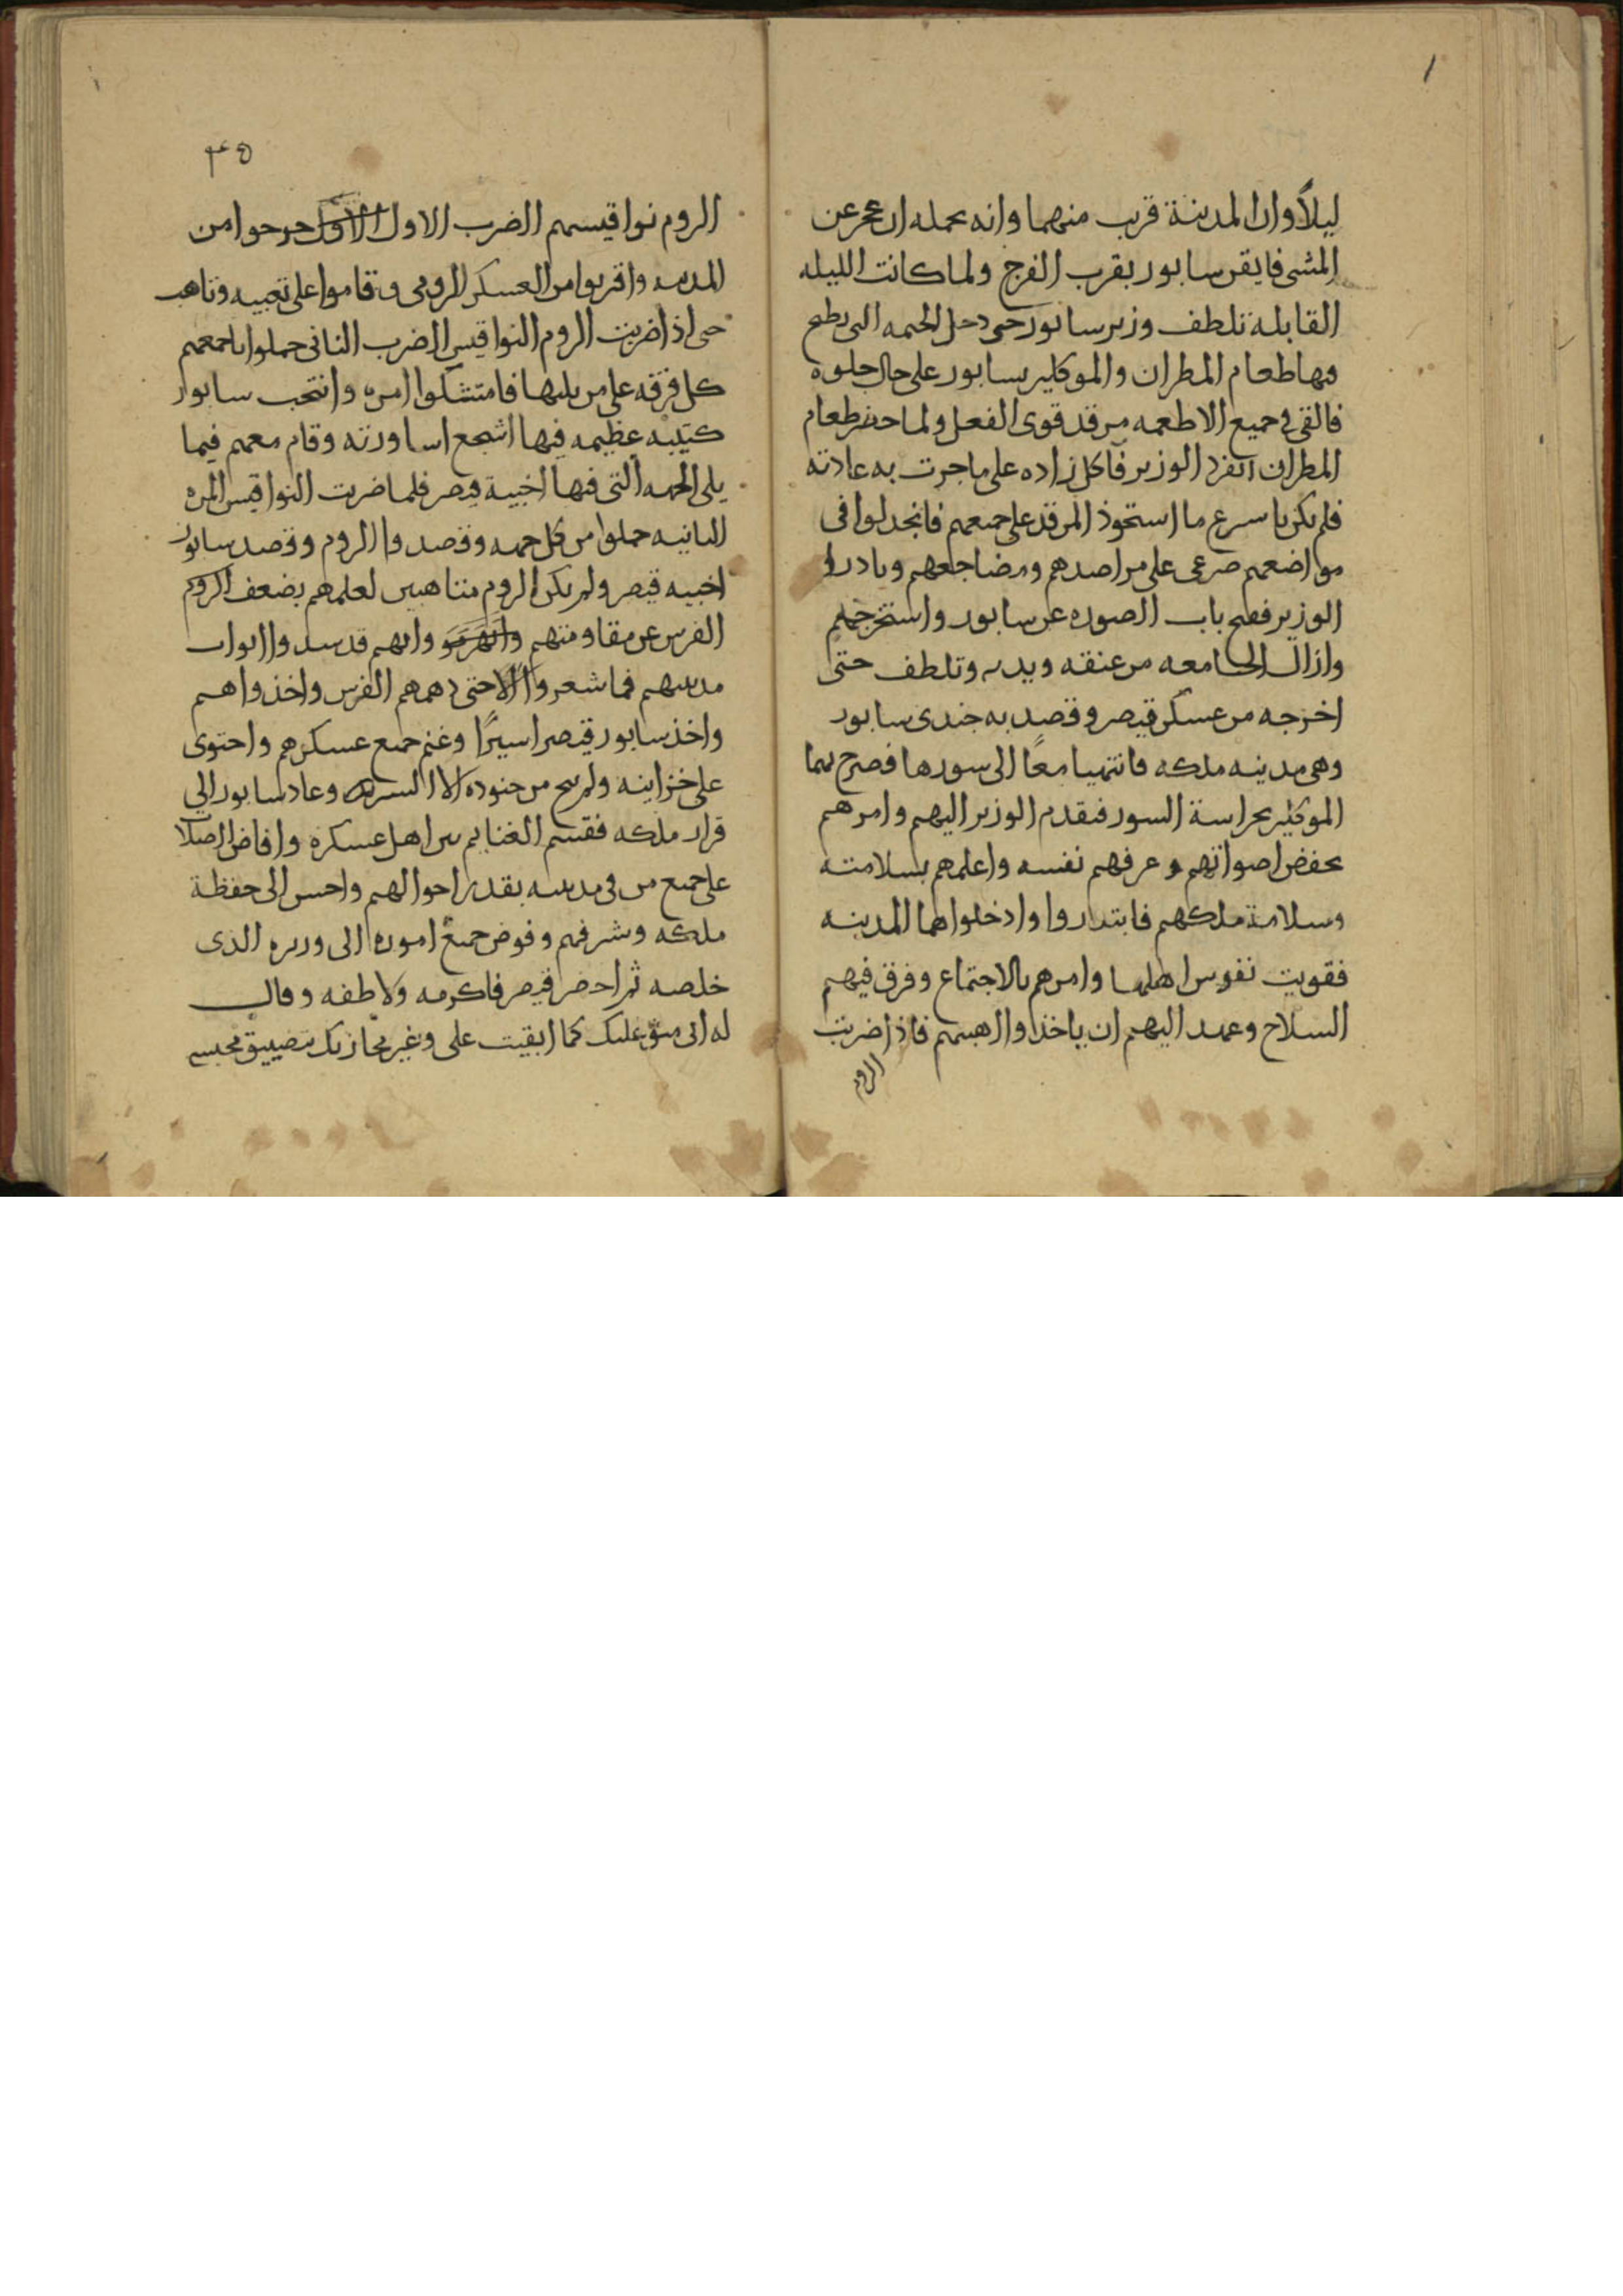 ليلاً وان المدينة قريب منهما وانه يحمله ان عجز عن
المشى فايقن سابور بقرب الفرج ولما كانت الليله
القابلة تلطف وزير سابور حتى دخل الخيمه التى يطبخ
فيها طعام المطران والموكلين بسابور على حال خلوه
فالقى فى جميع الاطعمه مرقد قوى الفعل ولما حضر طعام
المطران انفرد الوزير فاكل زاده على ما جرت به عادته
فلم يكن باسرع ما استحوذ المرقد على جميعهم فانجدلوا فى
مواضعهم صرعى على مراصدهم ومضاجعهم وبادر
الوزير ففتح باب الصوره عن سابور واستخرجه
وازال الجامعه من عنقه ويديه وتلطف حتى
اخرجه من عسكر قيصر وقصد به جندى سابور
وهى مدينه ملكه فانتهيا معًا الى سورها فصرخ بهما
الموكلين بحراسة السور فتقدم الوزير اليهم وامرهم
بخفض اصواتهم وعرفهم نفسه واعلمهم بسلامته
وسلامة ملكهم فابتدروا وادخلوهما المدينه
فقويت نفوس اهلها وامرهم بالاجتماع وفرق فيهم
السلاح وعهد اليهم ان ياخذوا اهبتهم فاذا ضربت
الروم
٤٥
الروم نواقيسهم الضرب الاول الاول خرجوا من
المدينه واقربوا من العسكر الرومى وقاموا على تعبيه وتاهب
حتى اذا ضربت الروم النواقيس الضرب الثانى حملوا باجمعهم
كل فرقه على من يليها فامتثلوا امره وانتخب سابور
كتيبه عظيمه فيها اشجع اساورته وقام معهم فيما
يلى الجهه التى فيها اخبية قيصر فلما ضربت النواقيس المره
الثانيه حملوا من كل جهه وقصدوا الروم وقصد سابور
اخبيه قيصر ولم يكن الروم متاهبين لعلمهم بضعف الروم
الفرس عن مقاومتهم وانهم قد سدوا ابواب
مدينتهم فما شعروا الا حتى دهمهم الفرس واخذواهم
واخذ سابور قيصر اسيرًا وغنم جميع عسكرهم واحتوى
على خزاينه ولم ينج من جنوده الا اليسير وعاد سابور الي
قرار ملكه فقسم الغنايم بين اهل عسكره وافاض الصلا
على جميع من فى مدينته بقدر احوالهم واحسن الى حفظة
ملكه وشرفهم وفوض جميع اموره الى وزيره الذى
خلصه ثم احضر قيصر فاكرمه ولاطفه وقال
له انى مبق عليك كما ابقيت على وغير مجازيك بتضييق محبسى